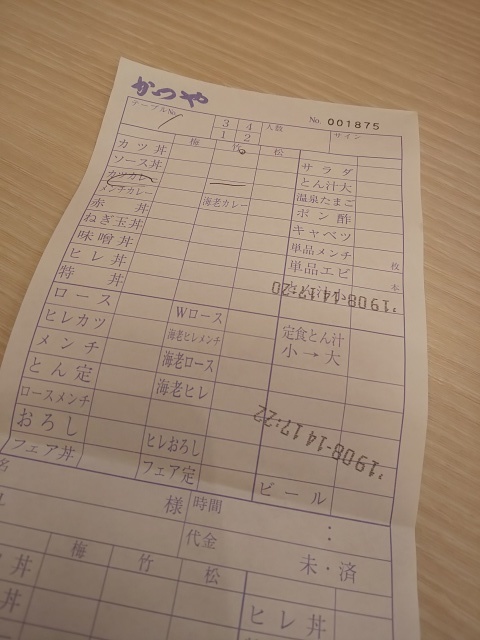 かつや
No. 001875
テーブルNo. 3 4 人数 サイン
1 2
梅 竹 松
カツ丼 サラダ
ソース丼 とん汁大
カツカレー 温泉たまご
メンチカレー 海老カレー ポン酢
赤丼 キャベツ
ねぎ玉丼 単品メンチ 枚
味噌丼 単品エビ 本
ヒレ丼
'1908-14 17:20
特丼
ロース Wロース 定食とん汁
ヒレカツ 海老ヒレメンチ 小→大
メンチ 海老ロース
とん定 海老ヒレ
'1908-14 17:22
ロースメンチ
おろし ヒレおろし
フェア丼 フェア定 ビール
名 様 時間 :
代金 未・済
梅 竹 松
丼 ヒレ丼
丼